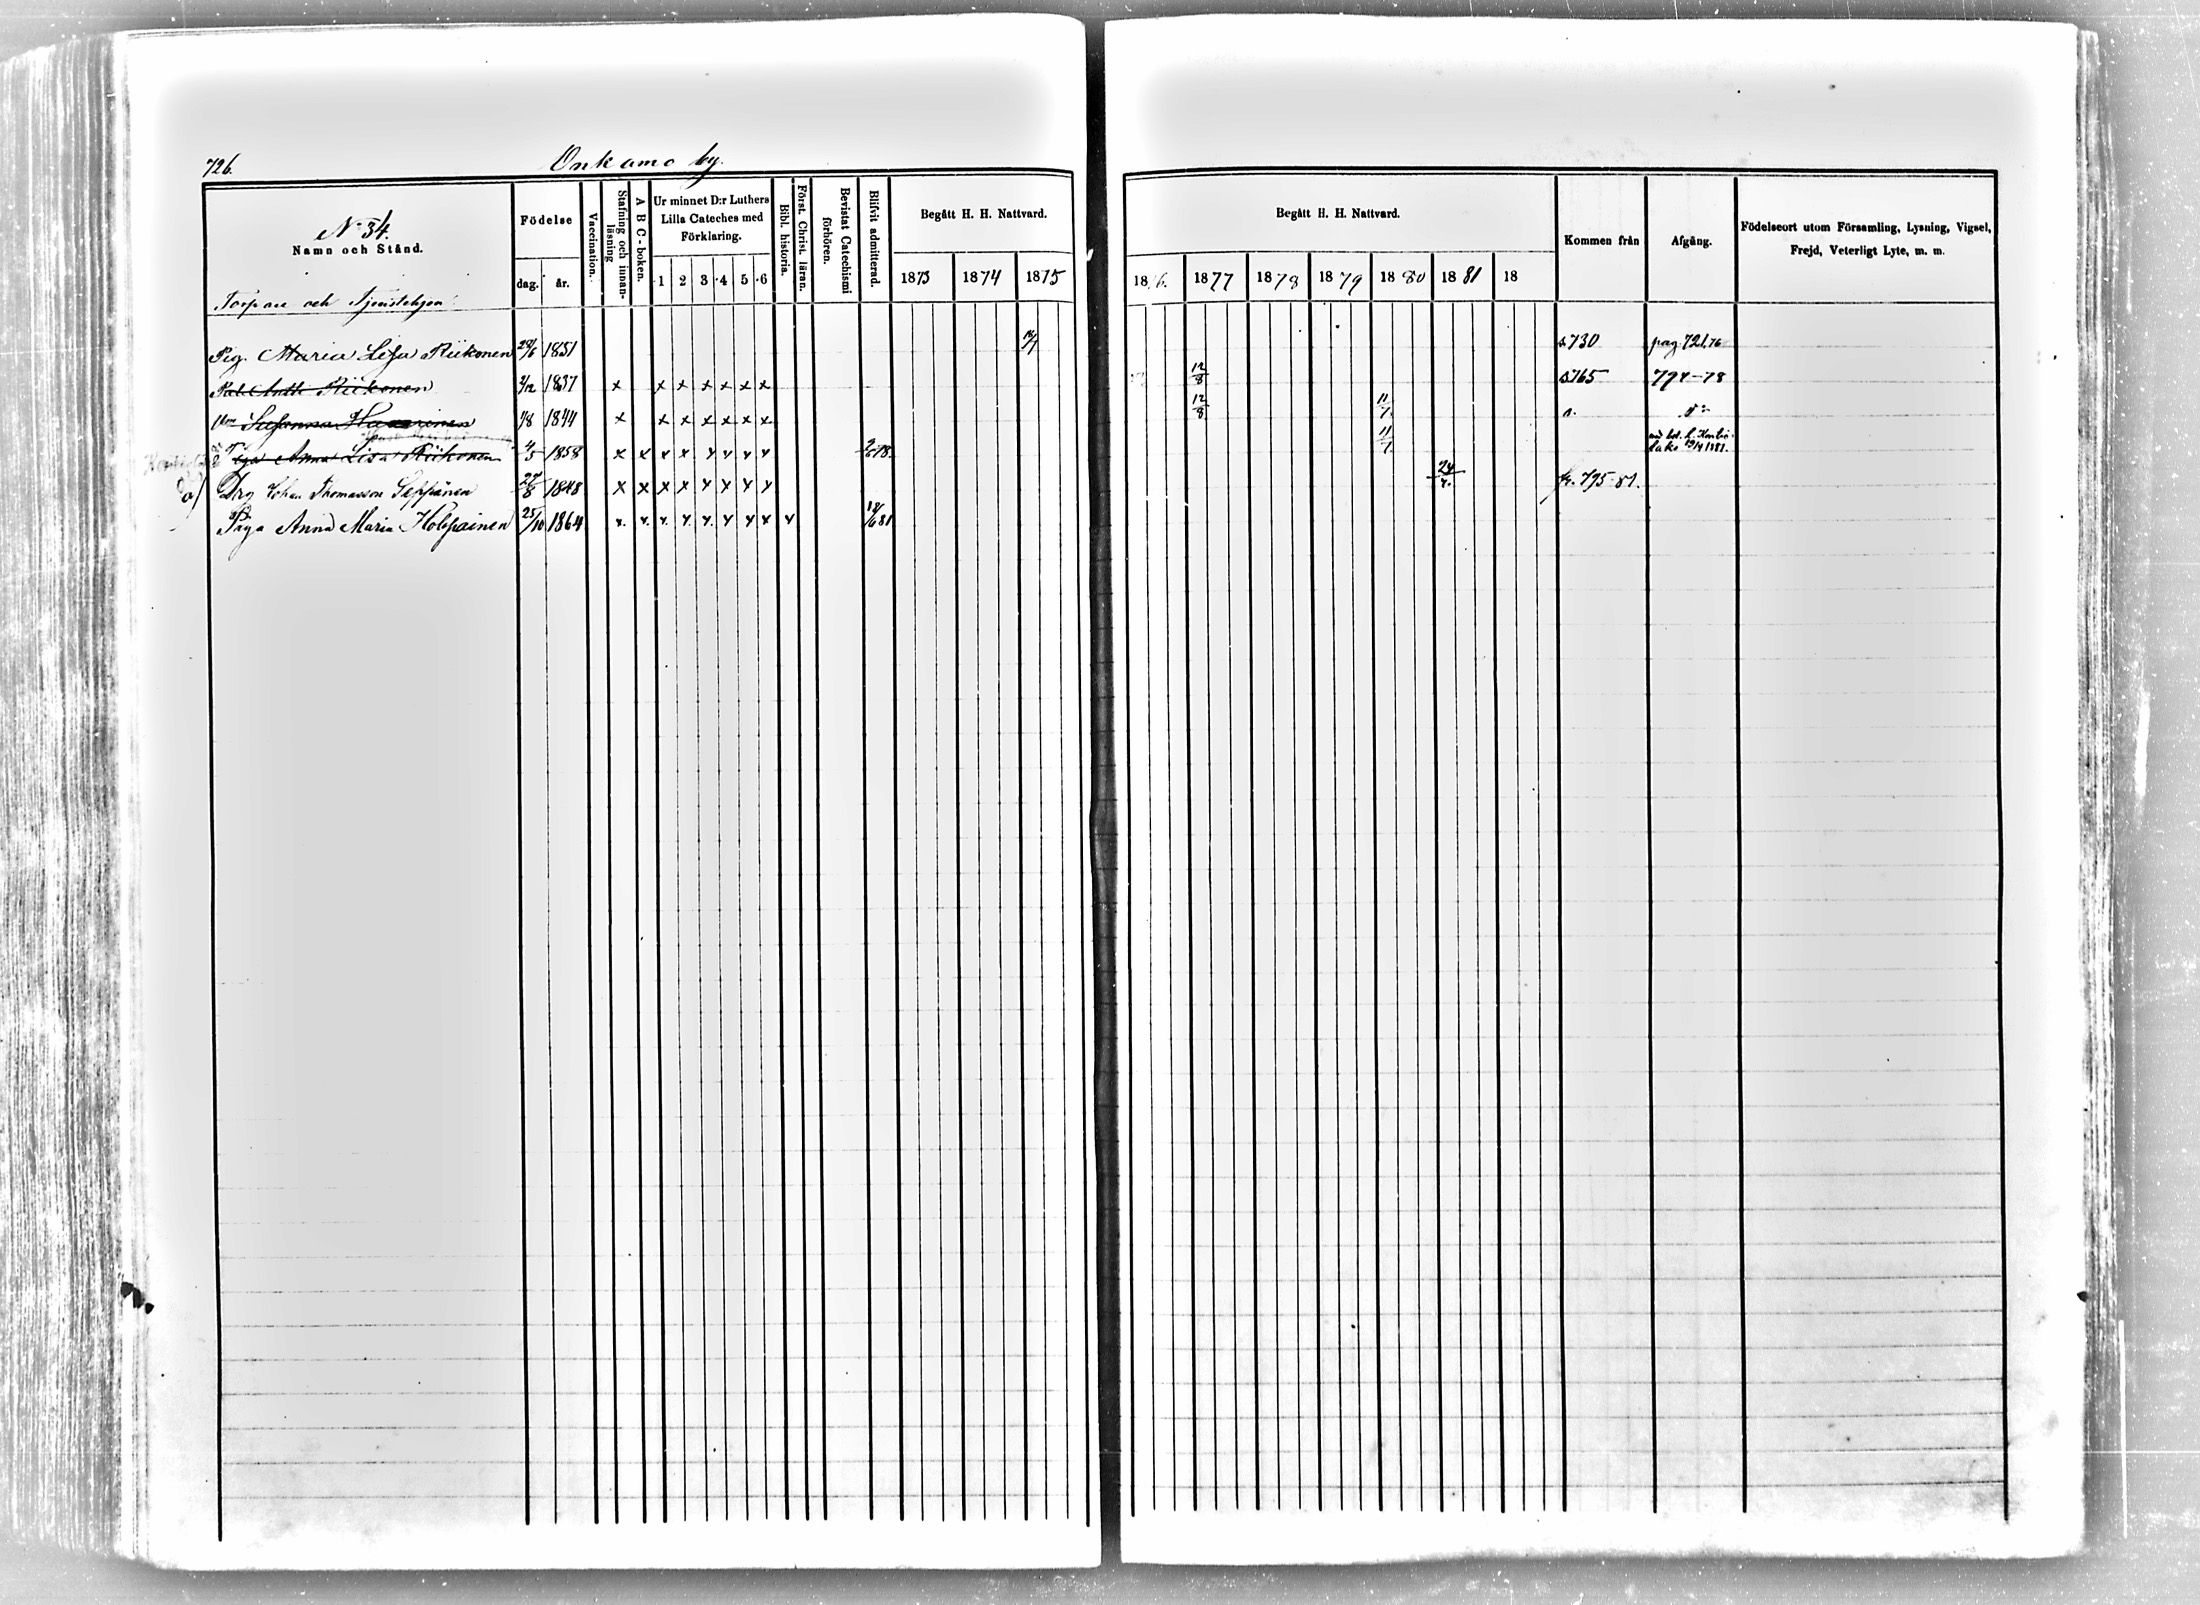 726. Onkamo by.
N 34.
Namn och Stånd.
Födelse
dag. år.
Vaccination.
Stafning och innan-läsning
A B C-boken.
Ur minnet D:r Luthers
Lilla Cateches med
Förklaring.
1 2 3 4 5 6
Bibl. historia.
Först. Christ. läran.
Bevistat Catechismi förhören.
Blifvit admitterad.
Begått H. H. Nattvard.
1873 1874 1875
Begått H. H. Nattvard.
1876. 1877 1878 1879 1880 1881 18
Kommen från
Afgång.
Födelseort utom Församling, Lysning, Vigsel,
Frejd, Veterligt Lyte, m. m.
Torpare och Tjenstehjon
Pig. Maria Lisa Riikonen 28/6 1851 s. 730 pag 721. 76
Antti Riikonen 2/12 1837 x x x x x x x 12/8 s. 765 794-78
Susanna 1/8 1844 x x x x x x x 12/8 11/7
Anna Lisa Riikonen 4/5 1858 x x x x x x x x 11/7
a) Drg Johan Thomasson Seppänen 27/8 1848 x x x x x x x x 24/7. fr. 795-81.
Piga Anna Maria Holopainen 25/10 1864 x x x x x x x x x 18/6 81